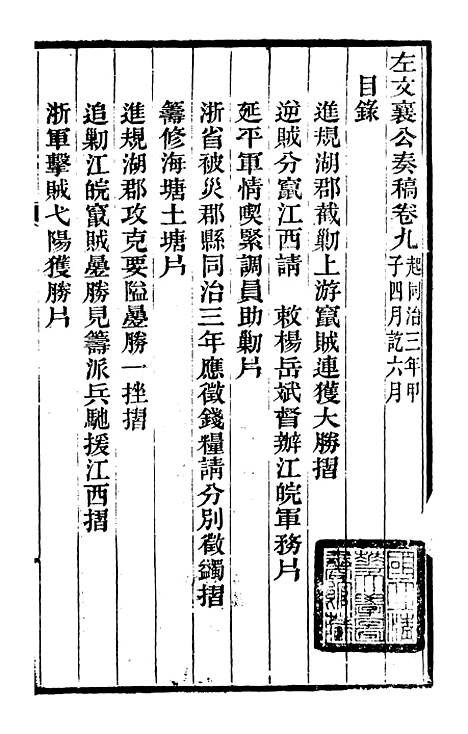 左文襄公奏稿卷九 起同治三年甲子四月訖六月
目錄
進規湖郡截剿上游竄賊連獲大勝摺
逆賊分竄江西請 敕楊岳斌督辦江皖軍務片
延平軍情喫緊調員助剿片
浙省被災郡縣同治三年應徵錢糧請分別徵蠲摺
籌修海塘土塘片
進規湖郡攻克要隘曡勝一挫摺
追剿江皖竄賊曡勝見籌派兵馳援江西摺
浙軍擊賊弋陽獲勝片